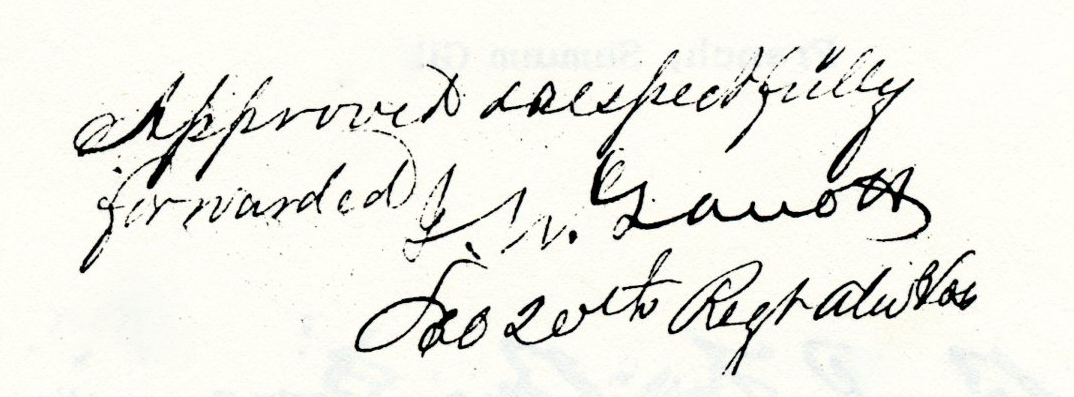 Approved & respectfully
forwarded I. W. Garrott
Col 20th Regt Ala Vols